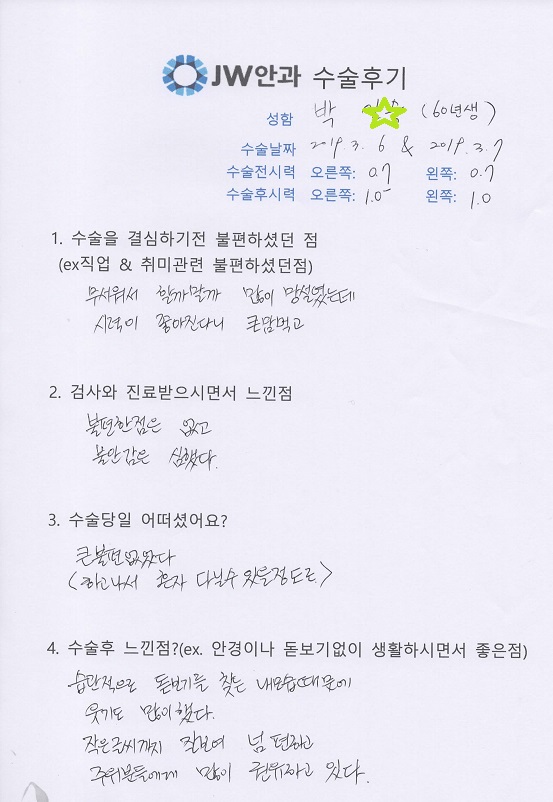 JW안과 수술후기
성함 박 (60년생)
수술날짜 2019. 3. 6 & 2019. 3. 7
수술전시력 오른쪽: 0.7 왼쪽: 0.7
수술후시력 오른쪽: 1.0 왼쪽: 1.0
1. 수술을 결심하기전 불편하셨던 점
(ex직업 & 취미관련 불편하셨던점)
무서워서 할까말까 많이 망설였는데
시력이 좋아진다니 큰맘먹고
2. 검사와 진료받으시면서 느낀점
불편한점은 없고
불안감은 심했다.
3. 수술당일 어떠셨어요?
큰불편없었다
(하고나서 혼자 다닐수 있을정도로)
4. 수술후 느낀점?(ex. 안경이나 돋보기없이 생활하시면서 좋은점)
습관적으로 돋보기를 찾는 내모습때문에
웃기도 많이했다.
작은글씨까지 잘보여 넘 편하고
주위분들에게 많이 권유하고 있다.